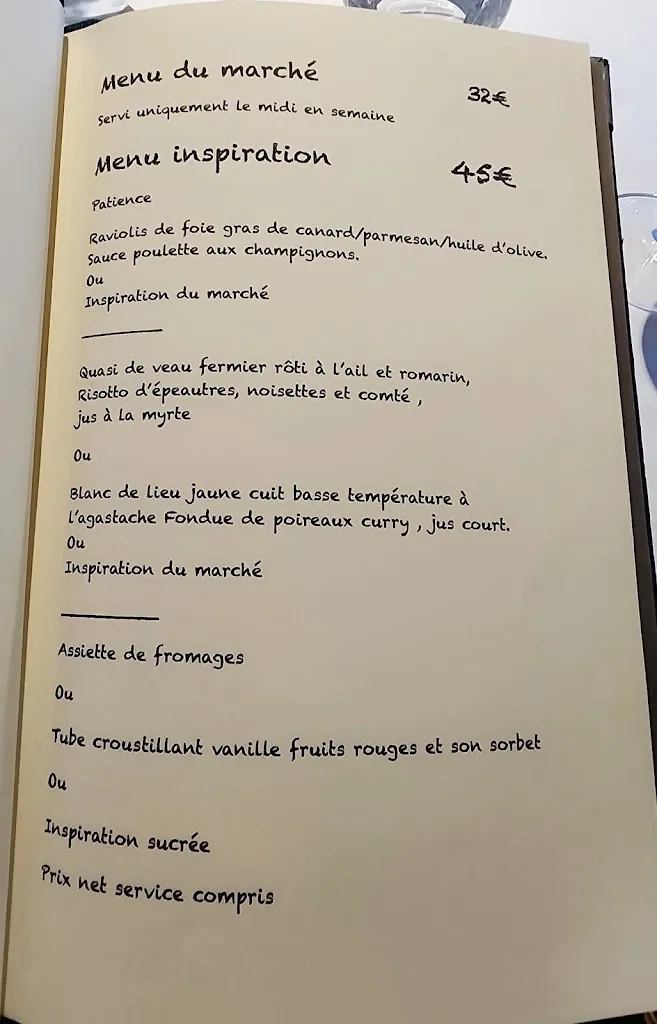 Menu du marché 32€
Servi uniquement le midi en semaine
Menu inspiration 45€
Patience
Raviolis de foie gras de canard/parmesan/huile d'olive.
Sauce poulette aux champignons.
Ou
Inspiration du marché
Quasi de veau fermier rôti à l'ail et romarin,
Risotto d'épeautres, noisettes et comté ,
jus à la myrte
Ou
Blanc de lieu jaune cuit basse température à
l'agastache Fondue de poireaux curry , jus court.
Ou
Inspiration du marché
Assiette de fromages
Ou
Tube croustillant vanille fruits rouges et son sorbet
Ou
Inspiration sucrée
Prix net service compris